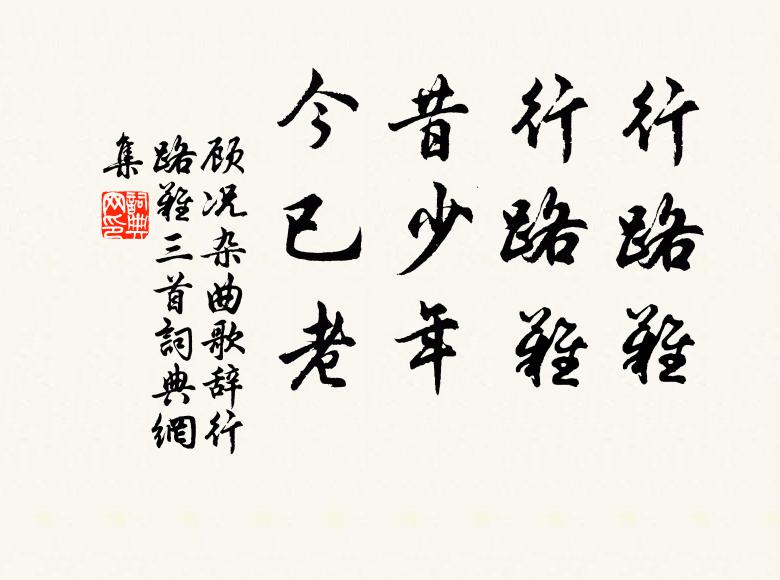 行路難
行路難
昔少年
今已老
顾况杂曲歌辞行
路難三首詞典網
集
詞典
网印